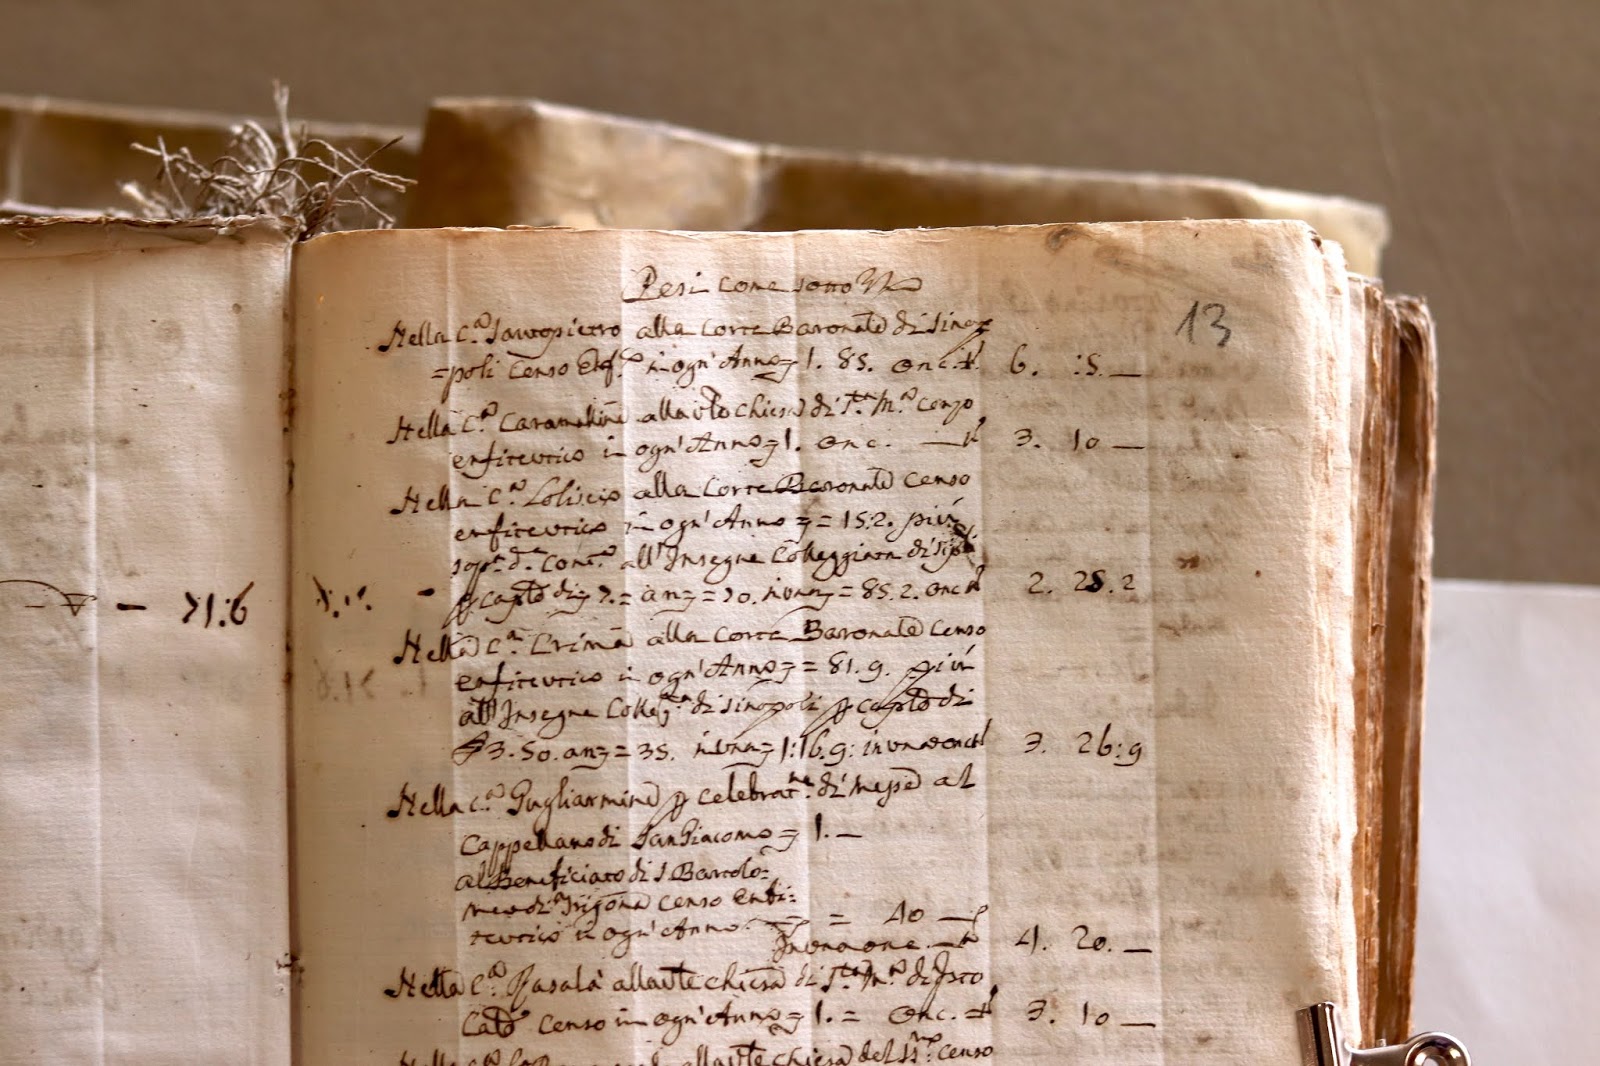 Pesi come sotto
13
Nella C.ª Santopietro alla Corte Baronale di Sino
=poli Censo Enf.co in ogn' Anno = 1. 85. onc. 6. :5. —
Nella C.ª alla Chiesa di S.ta M.ª cenzo
enfiteutico in ogn' Anno = 1. onc. — 3. 10 —
Nella C.ª Loliscio alla Corte Baronale Censo
enfiteutico in ogn' Anno = 15:2. più
sop.ª d.ª all' Insegne Colleggiata di
di 7. = an = 70. = 85. 2. onc 2. 28. 2
— 71:6
Nella C.ª Crima alla Corte Baronale Censo
enfiteutico in ogn' Anno = 81. 9. più
all' Insegne Colleg.ta di Sinopoli di
3. 50. an = 35. = 1:16. 9: in una onc 3. 26:9
Nella C.ª Gugliarmina celebrat.ne di Messe al
Cappellano di San Giacomo = 1. —
al Beneficiato di S Bartolo=
meo di Trigona Censo Enfi=
teutico in ogn' Anno. = 40 —
In una onc. — 4. 20. —
Nella C.ª Rasalà Chiesa di S.ta M.ª di
Censo in ogn' Anno = 1. = onc. 3. 10 —
Nella C.ª Chiesa del Censo